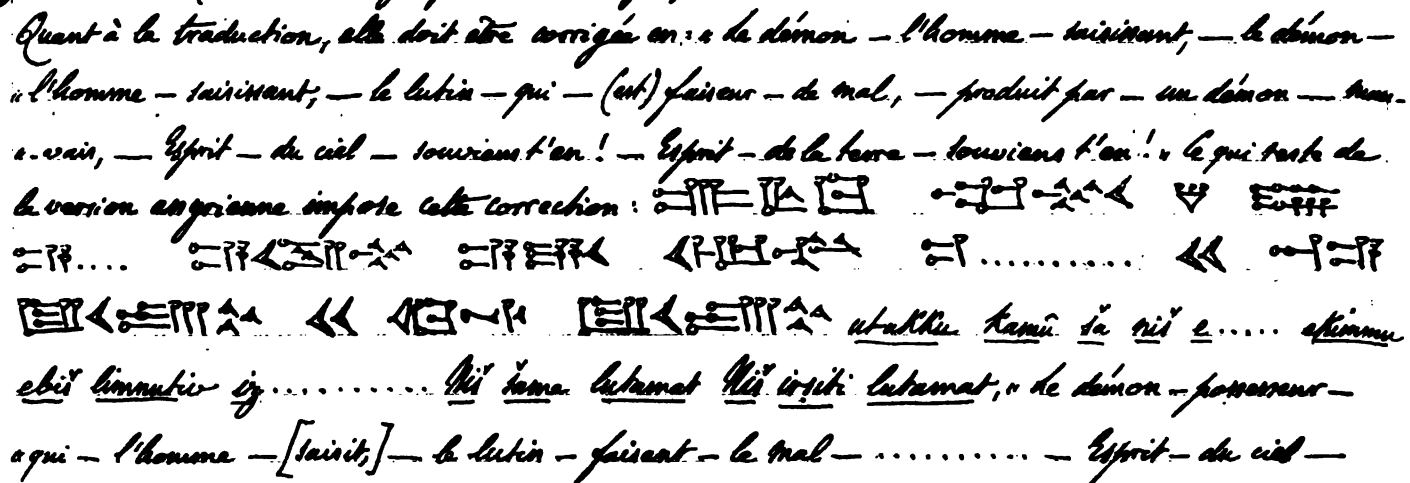 Quant à la traduction, elle doit être corrigée en : « Le démon — l'homme — saisissant, — le démon —
« l'homme — saisissant, — le lutin — qui — (est) faiseur — de mal, — produit par — un démon — mau-
«-vais, — Esprit — du ciel — souviens t'en ! — Esprit — de la terre — souviens t'en ! » Ce qui reste de
la version assyrienne impose cette correction :
utukku kamû ša niš e..... ekimmu
ebiš limnutiv iz .......... Niš šame lutamat Niš irṣiti lutamat, « Le démon — possesseur —
« qui — l'homme — [saisit,] — le lutin — faisant — le mal — .......... — Esprit — du ciel —